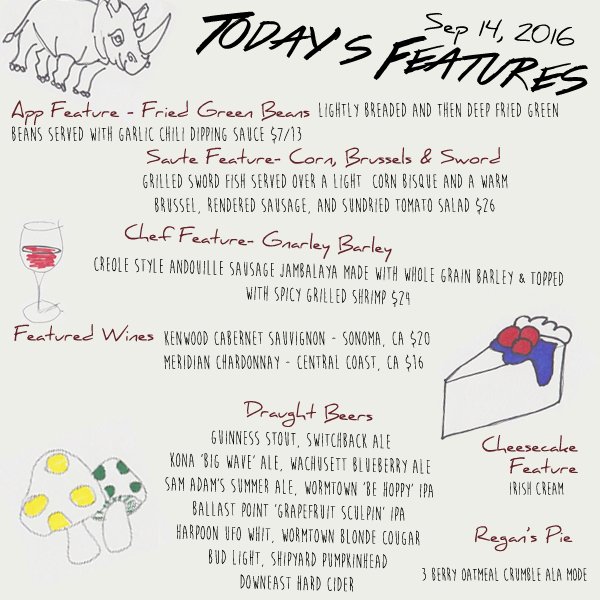 Sep 14, 2016
TODAY'S FEATURES
App Feature - Fried Green Beans LIGHTLY BREADED AND THEN DEEP FRIED GREEN
BEANS SERVED WITH GARLIC CHILI DIPPING SAUCE $7/13
Saute Feature- Corn, Brussels & Sword
GRILLED SWORD FISH SERVED OVER A LIGHT CORN BISQUE AND A WARM
BRUSSEL, RENDERED SAUSAGE, AND SUNDRIED TOMATO SALAD $26
Chef Feature- Gnarley Barley
CREOLE STYLE ANDOUILLE SAUSAGE JAMBALAYA MADE WITH WHOLE GRAIN BARLEY & TOPPED
WITH SPICY GRILLED SHRIMP $24
Featured Wines KENWOOD CABERNET SAUVIGNON - SONOMA, CA $20
MERIDIAN CHARDONNAY - CENTRAL COAST, CA $16
Draught Beers
GUINNESS STOUT, SWITCHBACK ALE
KONA 'BIG WAVE' ALE, WACHUSETT BLUEBERRY ALE
SAM ADAM'S SUMMER ALE, WORMTOWN 'BE HOPPY' IPA
BALLAST POINT 'GRAPEFRUIT SCULPIN' IPA
HARPOON UFO WHIT, WORMTOWN BLONDE COUGAR
BUD LIGHT, SHIPYARD PUMPKINHEAD
DOWNEAST HARD CIDER
Cheesecake
Feature
IRISH CREAM
Regan's Pie
3 BERRY OATMEAL CRUMBLE ALA MODE